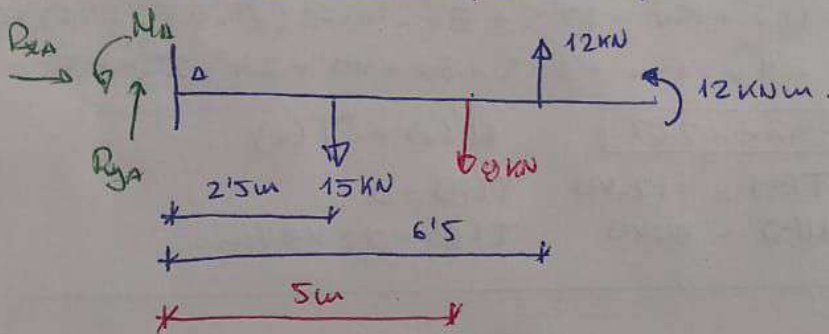 MA
RxA
A
RyA
12KN
12KNm.
15KN
8KN
2'5m
6'5
5m